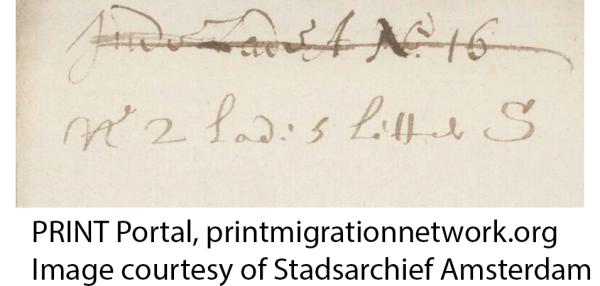 Inde Lade A No. 16
No 2 Lad: 5 Litter S
PRINT Portal, printmigrationnetwork.org
Image courtesy of Stadsarchief Amsterdam